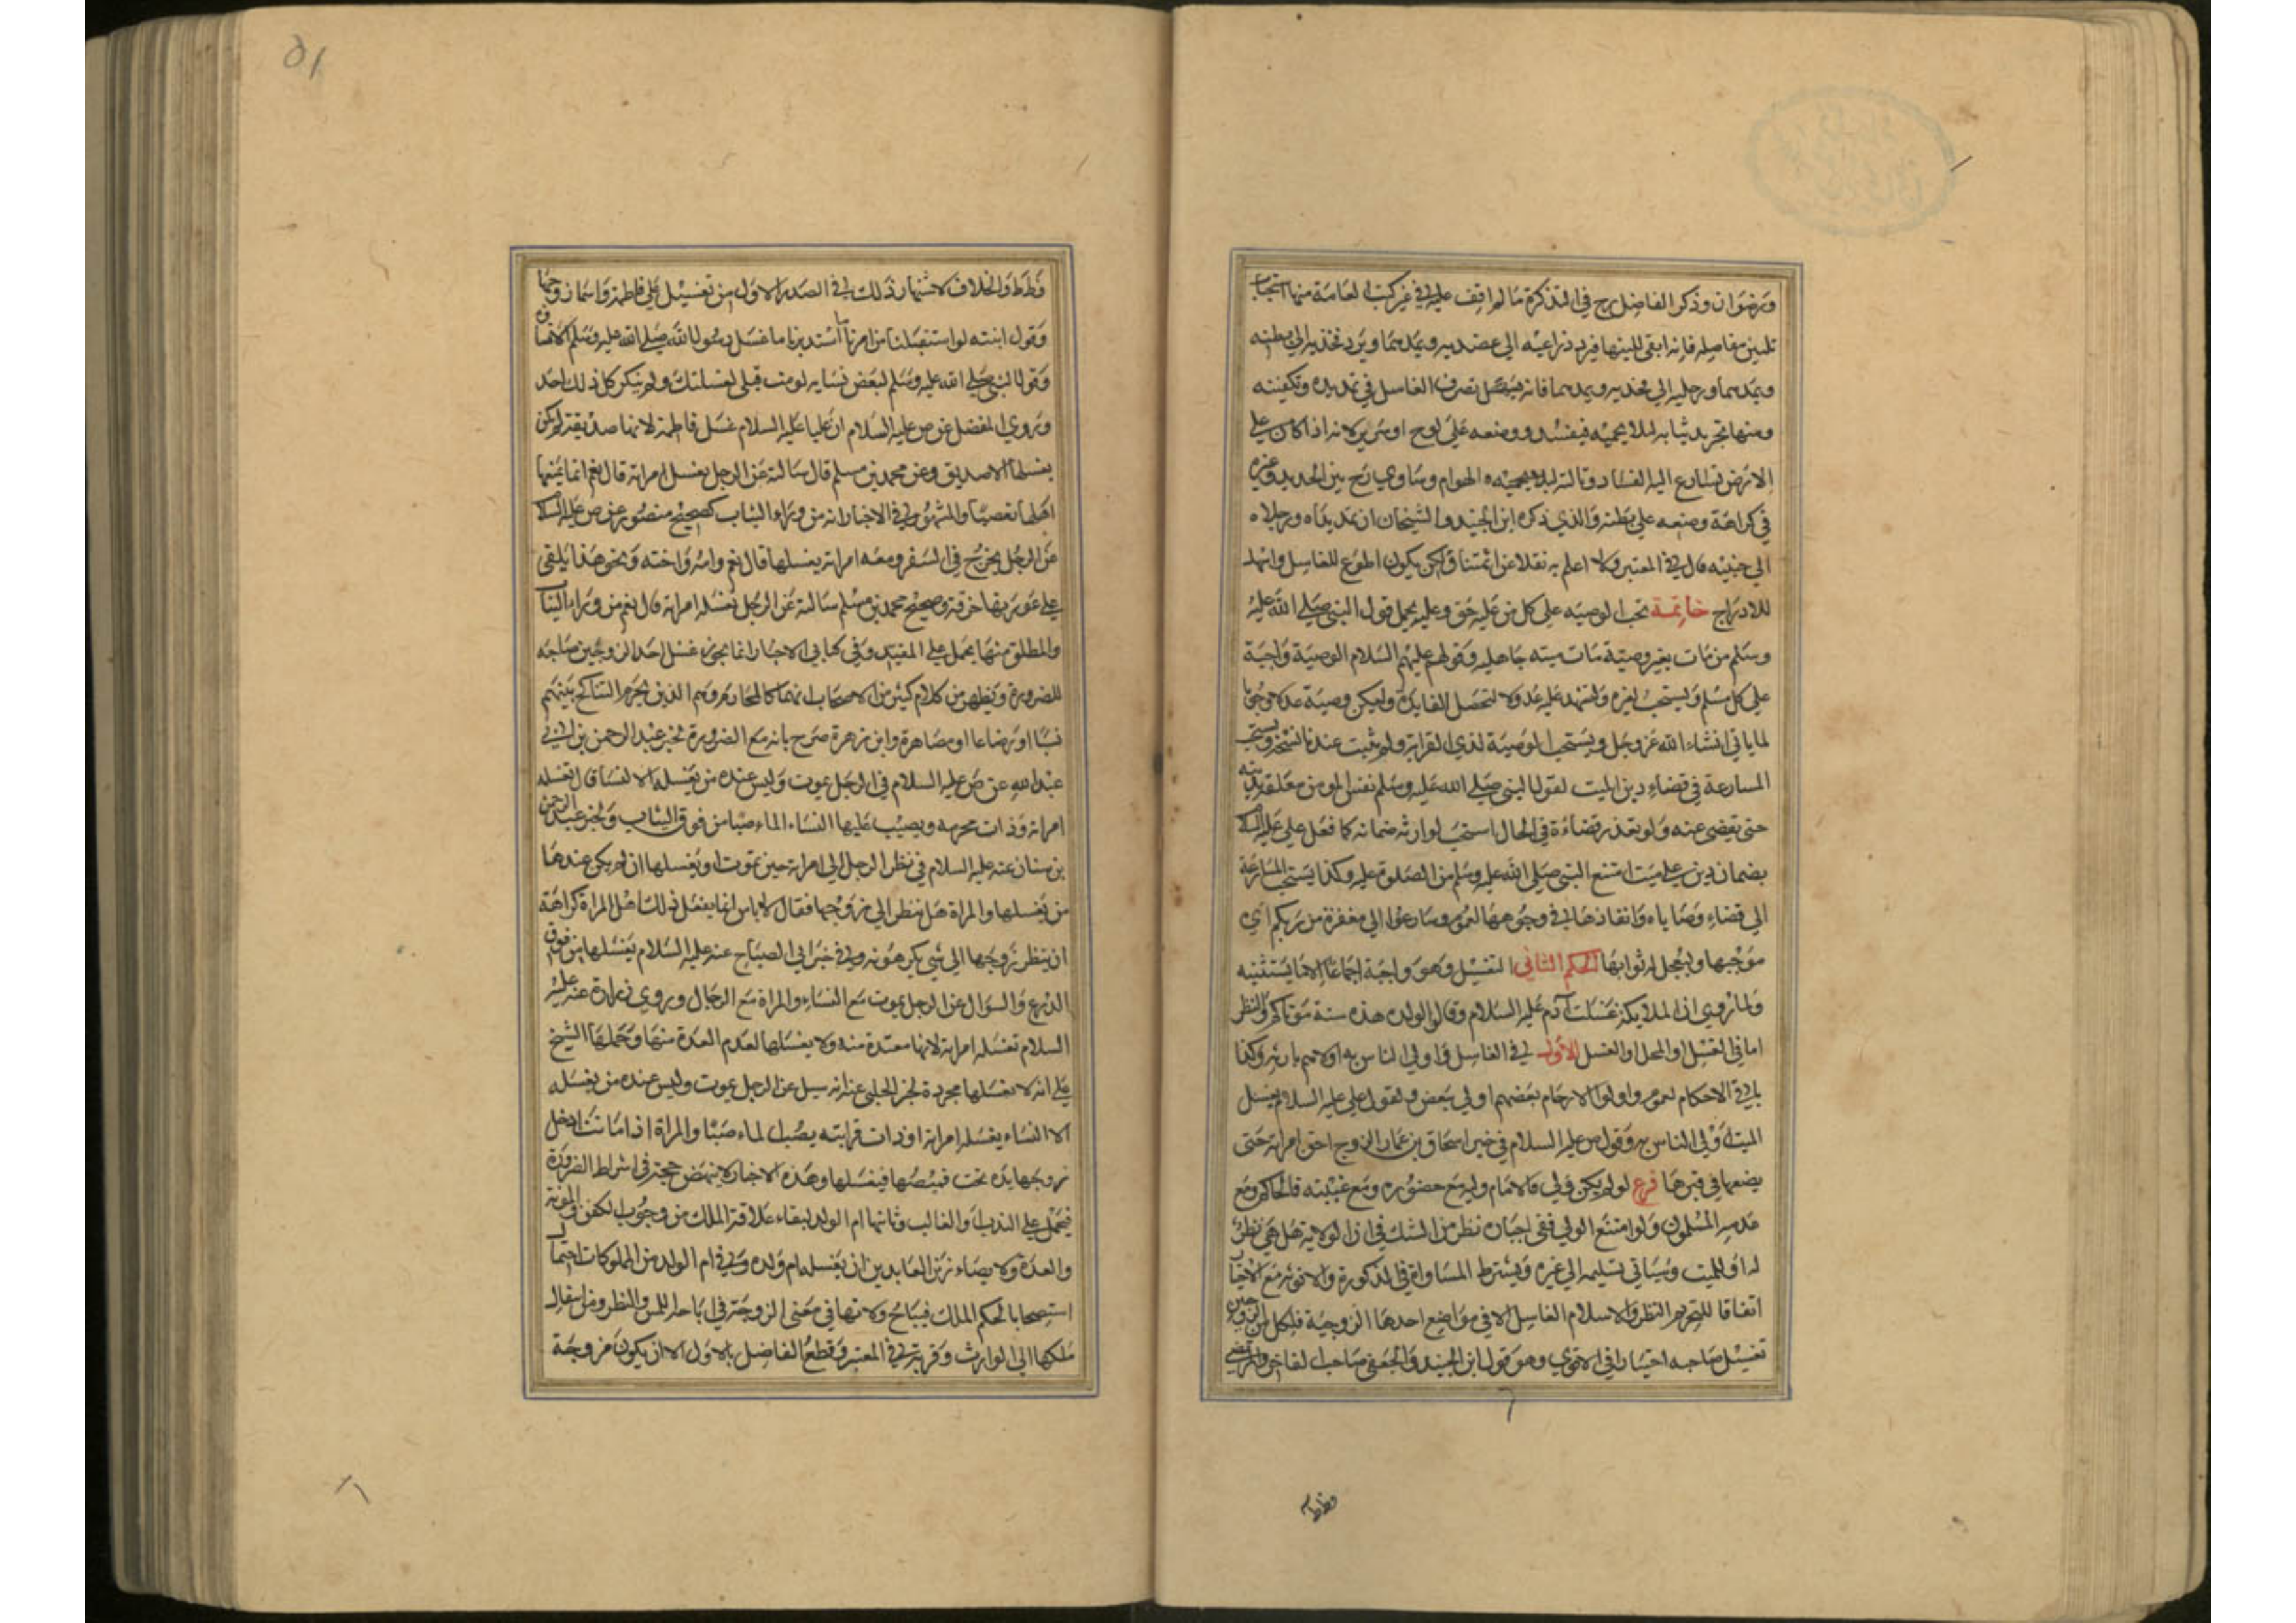 ورضوان وذكر الفاضل رح في التذكرة ما لم اقف عليه في غير كتب العامة منها استحباب
تليين مفاصله فانه ابقى للينها فيرد ذراعيه الى عضديه ويمدهما ويرد فخذيه الى بطنه
ويمدهما ورجليه الى فخذيه ويمدهما فانه يسهل تصرف الغاسل في تمديده وتكفينه
ومنها تجريد ثيابه لئلا يحميه فيفسد ووضعه على لوح او سرير لانه اذا كان على
الارض تسارع اليه الفساد ونالته الهوام وساوى رح بين الحديد وغيره
في كراهة وضعه على بطنه والذي ذكره ابن الجنيد والشيخان ان تمد يداه ورجلاه
الى جنبيه قال في المعتبر ولا اعلم به نقلا عن ائمتنا ولكن يكون اطوع للغاسل واسهل
للادراج خاتمة تجب الوصية على كل من عليه حق وعليه يحمل قول النبي صلى الله عليه
وسلم من مات بغير وصية مات ميتة جاهلية وقولهم عليهم السلام الوصية واجبة
على كل مسلم ويستحب لغيره وليشهد عليه عدولا لتحصل الفايدة وليكن وصية عدلا وجوبا
لما ياتي انشاء الله عز وجل ويستحب الوصية لذي القرابة ولم يثبت عندنا النسخ ويستحب
المسارعة في قضاء دين الميت لقول النبي صلى الله عليه وسلم نفس المومن معلقة بدينه
حتى يقضى عنه ولو تعذر قضاءه في الحال استحب لوارثه ضمانه كما فعل علي عليه السلام
بضمان دين على ميت امتنع النبي صلى الله عليه وسلم من الصلوة عليه وكذا يستحب المسارعة
الى قضاء وصاياه وانفاذها في وجوهها لعموم وسارعوا الى مغفرة من ربكم اي
موجبها وليعجل له ثوابها الحكم الثاني التغسيل وهو واجبة اجماعا الا ما يستثنيه
ولما روي ان الملايكة غسلت آدم عليه السلام وقالوا لولده هذه سنة موتاكم والنظر
اما في الغسل او المحل او الغسل الاول في الغاسل واولى الناس به اولاهم بارثه وكذا
باقي الاحكام لعموم واولوا الارحام بعضهم اولى ببعض ولقول علي عليه السلام يغسل
الميت اولى الناس به وقول ص عليه السلام في خبر اسحاق بن عمار الزوج احق امراته حتى
يضعها في قبرها فرع لو لم يكن ولي فالامام وليه مع حضوره ومع غيبته فالحاكم ومع
عدمه المسلمون ولو امتنع الولي ففي اجباره نظر من الشك في ان الولاية هل هي نظر
له او للميت وسياتي تسليمه الى غيره ويشترط المساواة في الذكورة والانوثة مع الاختيار
اتفاقا لتحريم النظر ولاسلام الغاسل الا في مواضع احدها الزوجية فلكل من الزوجين
تغسيل صاحبه اختيارا في الاقوى وهو قول ابن الجنيد والجعفي صاحب الفاخر والمرتضى
وط
51
وط وط والخلاف لاشتهار ذلك في الصدر الاول من تغسيل علي فاطمة واسماء زوجها
وقول ابنته لو استقبلنا من امرنا ما استدبرنا ما غسل رسول الله صلى الله عليه وسلم الا نساؤه
وقول النبي صلى الله عليه وسلم لبعض نسايه لو مت قبلي لغسلتك ولم ينكر كل ذلك احد
وروى المفضل عن ص عليه السلام ان عليا عليه السلام غسل فاطمة لانها صديقة لم يكن
يغسلها الا صديق وعن محمد بن مسلم قال سالته عن الرجل يغسل امراته قال نعم انما يمنعها
اهلها تعصبا والمشهور في الاخبار انه من وراء الثياب كصحيح منصور عن ص عليه السلام
عن الرجل يخرج في السفر ومعه امراته يغسلها قال نعم وامه واخته ونحو هذا يلقى
على عورتها خرقة وصحيح محمد بن مسلم سالته عن الرجل يغسل امراته قال نعم من وراء الثياب
والمطلق منها يحمل على المقيد وفي كتابي الاخبار انما يجوز غسل احد الزوجين صاحبه
للضرورة ويظهر من كلام كثير من الاصحاب انهما كالمحارم وهم الذين يحرم التناكح بينهم
نسبا او رضاعا او مصاهرة وابن زهرة صرح بانه مع الضرورة لخبر عبد الرحمن بن ابي
عبد الله عن ص عليه السلام في الرجل يموت وليس عنده من يغسله الا النساء قال تغسله
امراته وذات محرمه ويصب عليها النساء الماء صبا من فوق الثياب ولخبر عبد الرحمن
بن سنان عنه عليه السلام في نظر الرجل الى امراته حين تموت او يغسلها ان لم يكن عندها
من يغسلها والمراة هل تنظر الى زوجها فقال لا باس انما يفعل ذلك اهل المراة كراهة
ان ينظر زوجها الى شي يكرهونه وفي خبر ابي الصباح عنه عليه السلام يغسلها من فوق
الدرع والسوال عن الرجل يموت مع النساء والمراة مع الرجال وروى زرارة عنه عليه
السلام تغسله امراته لانها معتدة منه ولا يغسلها لعدم العدة منها وحملها الشيخ
على انه لا يغسلها مجردة لخبر الحلبي عنه انه سيل عن الرجل يموت وليس عنده من يغسله
الا النساء يغسله امراته او ذات قرابته يصب الماء صبا والمراة اذا ماتت ادخل
زوجها يده تحت قميصها فيغسلها وهذه الاخبار لا ينهض حجة في اشراط الضرورة
فيحمل على الندب او الغالب وثانيها ام الولد لبقاء علاقة الملك من وجوب الكفن والمونة
والعدة ولايصاء زين العابدين ان يغسله ام ولده وفي ام الولد من المملوكات احتمال
استصحابا لحكم الملك فيباح ولانها في معنى الزوجة في اباحة اللمس والنظر ومن انتقال
ملكها الى الوارث وقربه في المعتبر وقطع الفاضل بالاول الا ان يكون مزوجة